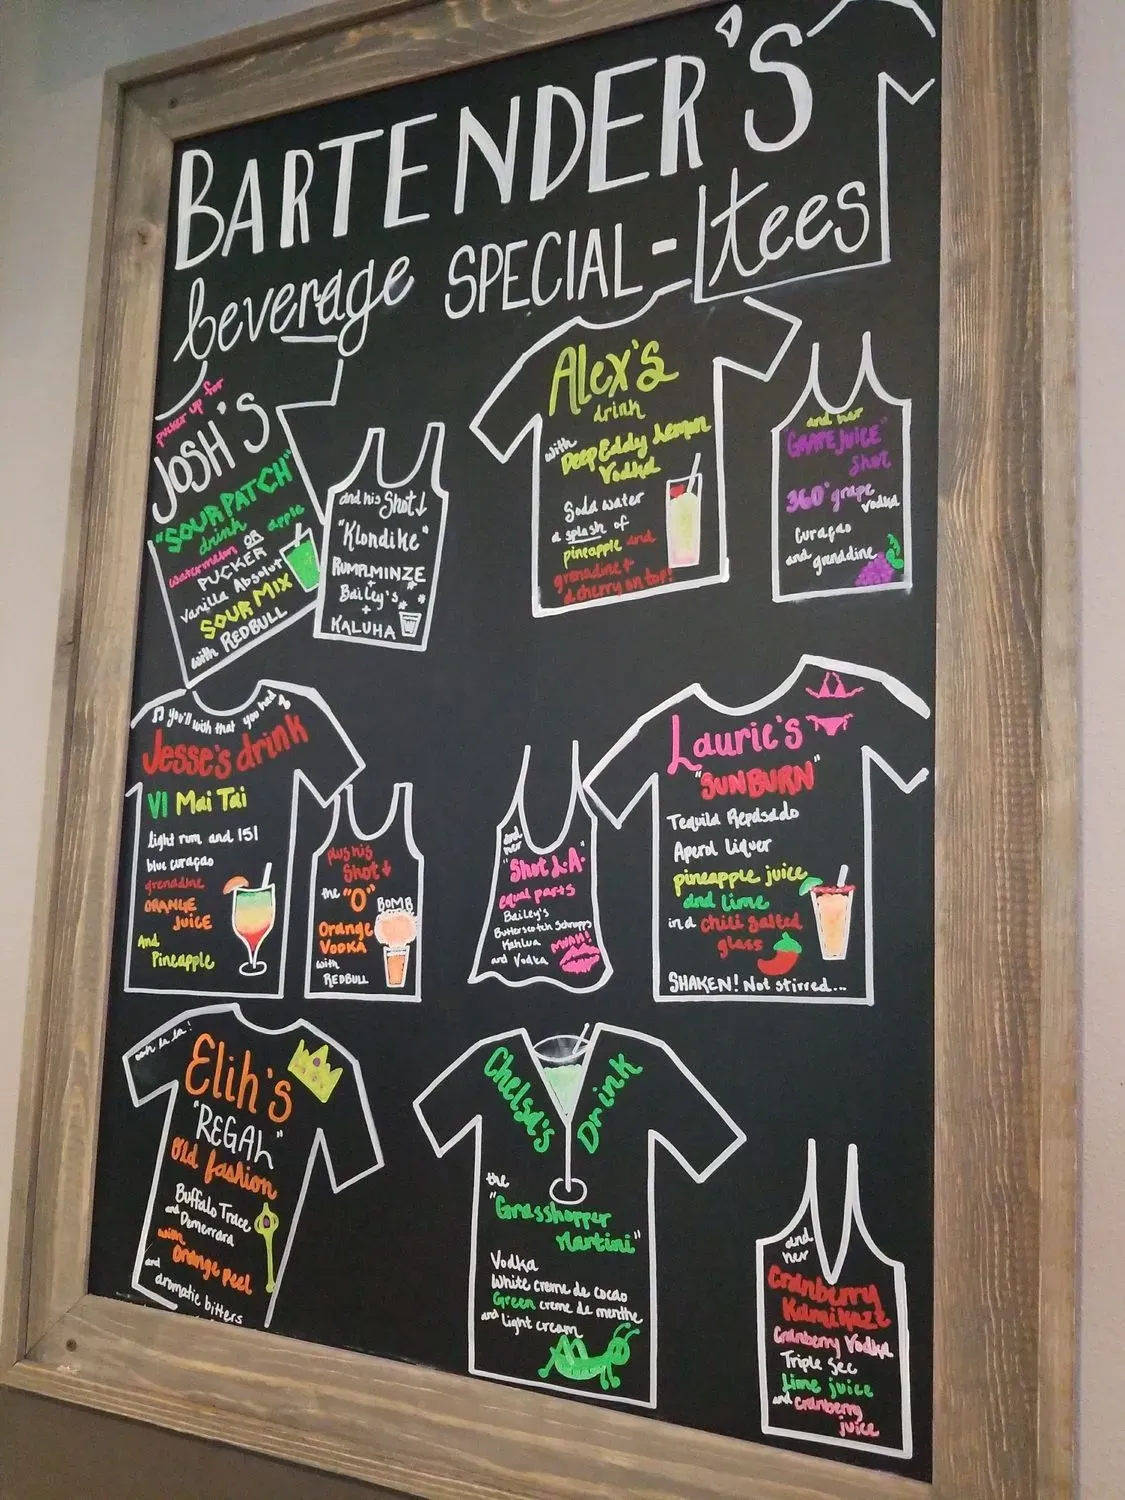 BARTENDER'S
beverage SPECIAL-tees
pucker up for
JOSH'S
"SOURPATCH"
drink
watermelon OR apple
PUCKER
Vanilla Absolut
SOUR MIX
with REDBULL
and his Shot↓
"Klondike"
RUMPLMINZE
+
Bailey's
+
KALUHA
Alex's
drink
with
Deep Eddy Lemon
Vodka
Soda water
a splash of
pineapple and
grenadine +
a cherry on top!
and her
"GRAPE JUICE"
Shot
360° grape
vodka
Curaçao
and grenadine
♫ you'll wish that you had ♪
Jesse's drink
VI Mai Tai
light rum and 151
blue curaçao
grenadine
ORANGE
JUICE
And
Pineapple
plus his
Shot↓
the "O"
BOMB
Orange
VODKA
with
REDBULL
and
her
"Shot L.A."
equal parts
Bailey's
Butterscotch Schnapps
Kahlua
and Vodka
MWAH!
Laurie's
"SUNBURN"
Tequila Repasado
Aperol Liquer
pineapple juice
and lime
in a chili salted
glass
SHAKEN! Not stirred...
ooh la la!
Elih's
"REGAL"
Old fashion
Buffalo Trace
and Demerrara
with
Orange peel
and
aromatic bitters
Chelsa's
Drink
the
"Grasshopper
Martini"
Vodka
White creme de cocao
Green creme de menthe
and light cream
and
her
Cranberry
Kamikaze
Cranberry Vodka
Triple Sec
Lime juice
and cranberry
juice